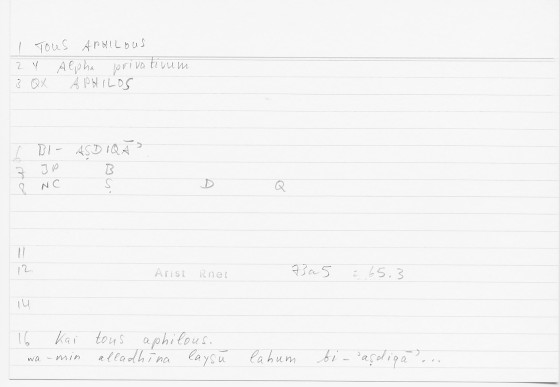 1 TOUS APHILOUS
2 Y Alpha privativum
3 QX APHILOS
6 BI- AṢDIQĀʾ
7 JP B
8 NC Ṣ D Q
11
12 Arist Rhet 73a5 = 65.3
14
16 Kai tous aphilous.
wa-min alladhīna laysū lahum bi-ʾaṣdiqāʾ...